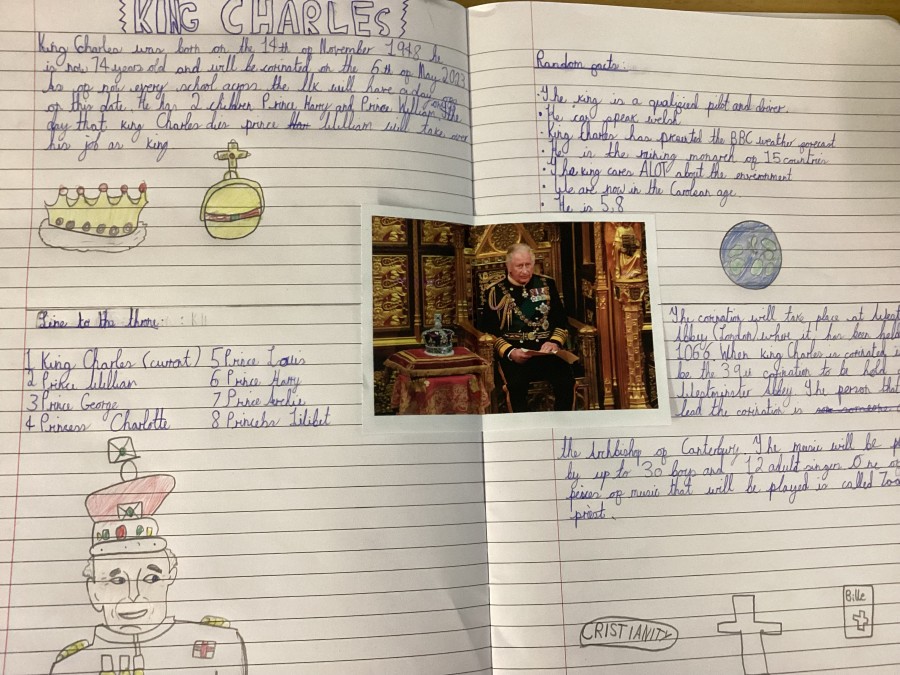 KING CHARLES
King Charles was born on the 14th of November 1948 he
is now 74 years old and will be corinated on the 6th of May 2023
As of now every school across the Uk will have a day off
on this date. He has 2 children Prince Harry and Prince William The
day that king Charles dies prince William will take over
his job as king
Line to the throne:
1 King Charles (current)
2 Prince William
3 Prince George
4 Princess Charlotte
5 Prince Louis
6 Prince Harry
7 Prince Archie
8 Princess Lilibet
Random facts:
• The king is a qualified pilot and driver.
• He can speak welsh
• King Charles has presented the BBC weather forecast
• He is the reining monarch of 15 countries
• The king cares ALOT about the environment
• We are now in the Carolean age
• He is 5,8
The corination will take place at
Abbey (London) where it has been held
1066. When king Charles is corinated
be the 39th corination to be held
Westminster Abbey The person that
lead the corination is
the Archbishop of Canterbury The music will be
by up to 30 boys and 12 aduld singers One of
peices of music that will be played is called
priest.
CRISTIANITY
Bible